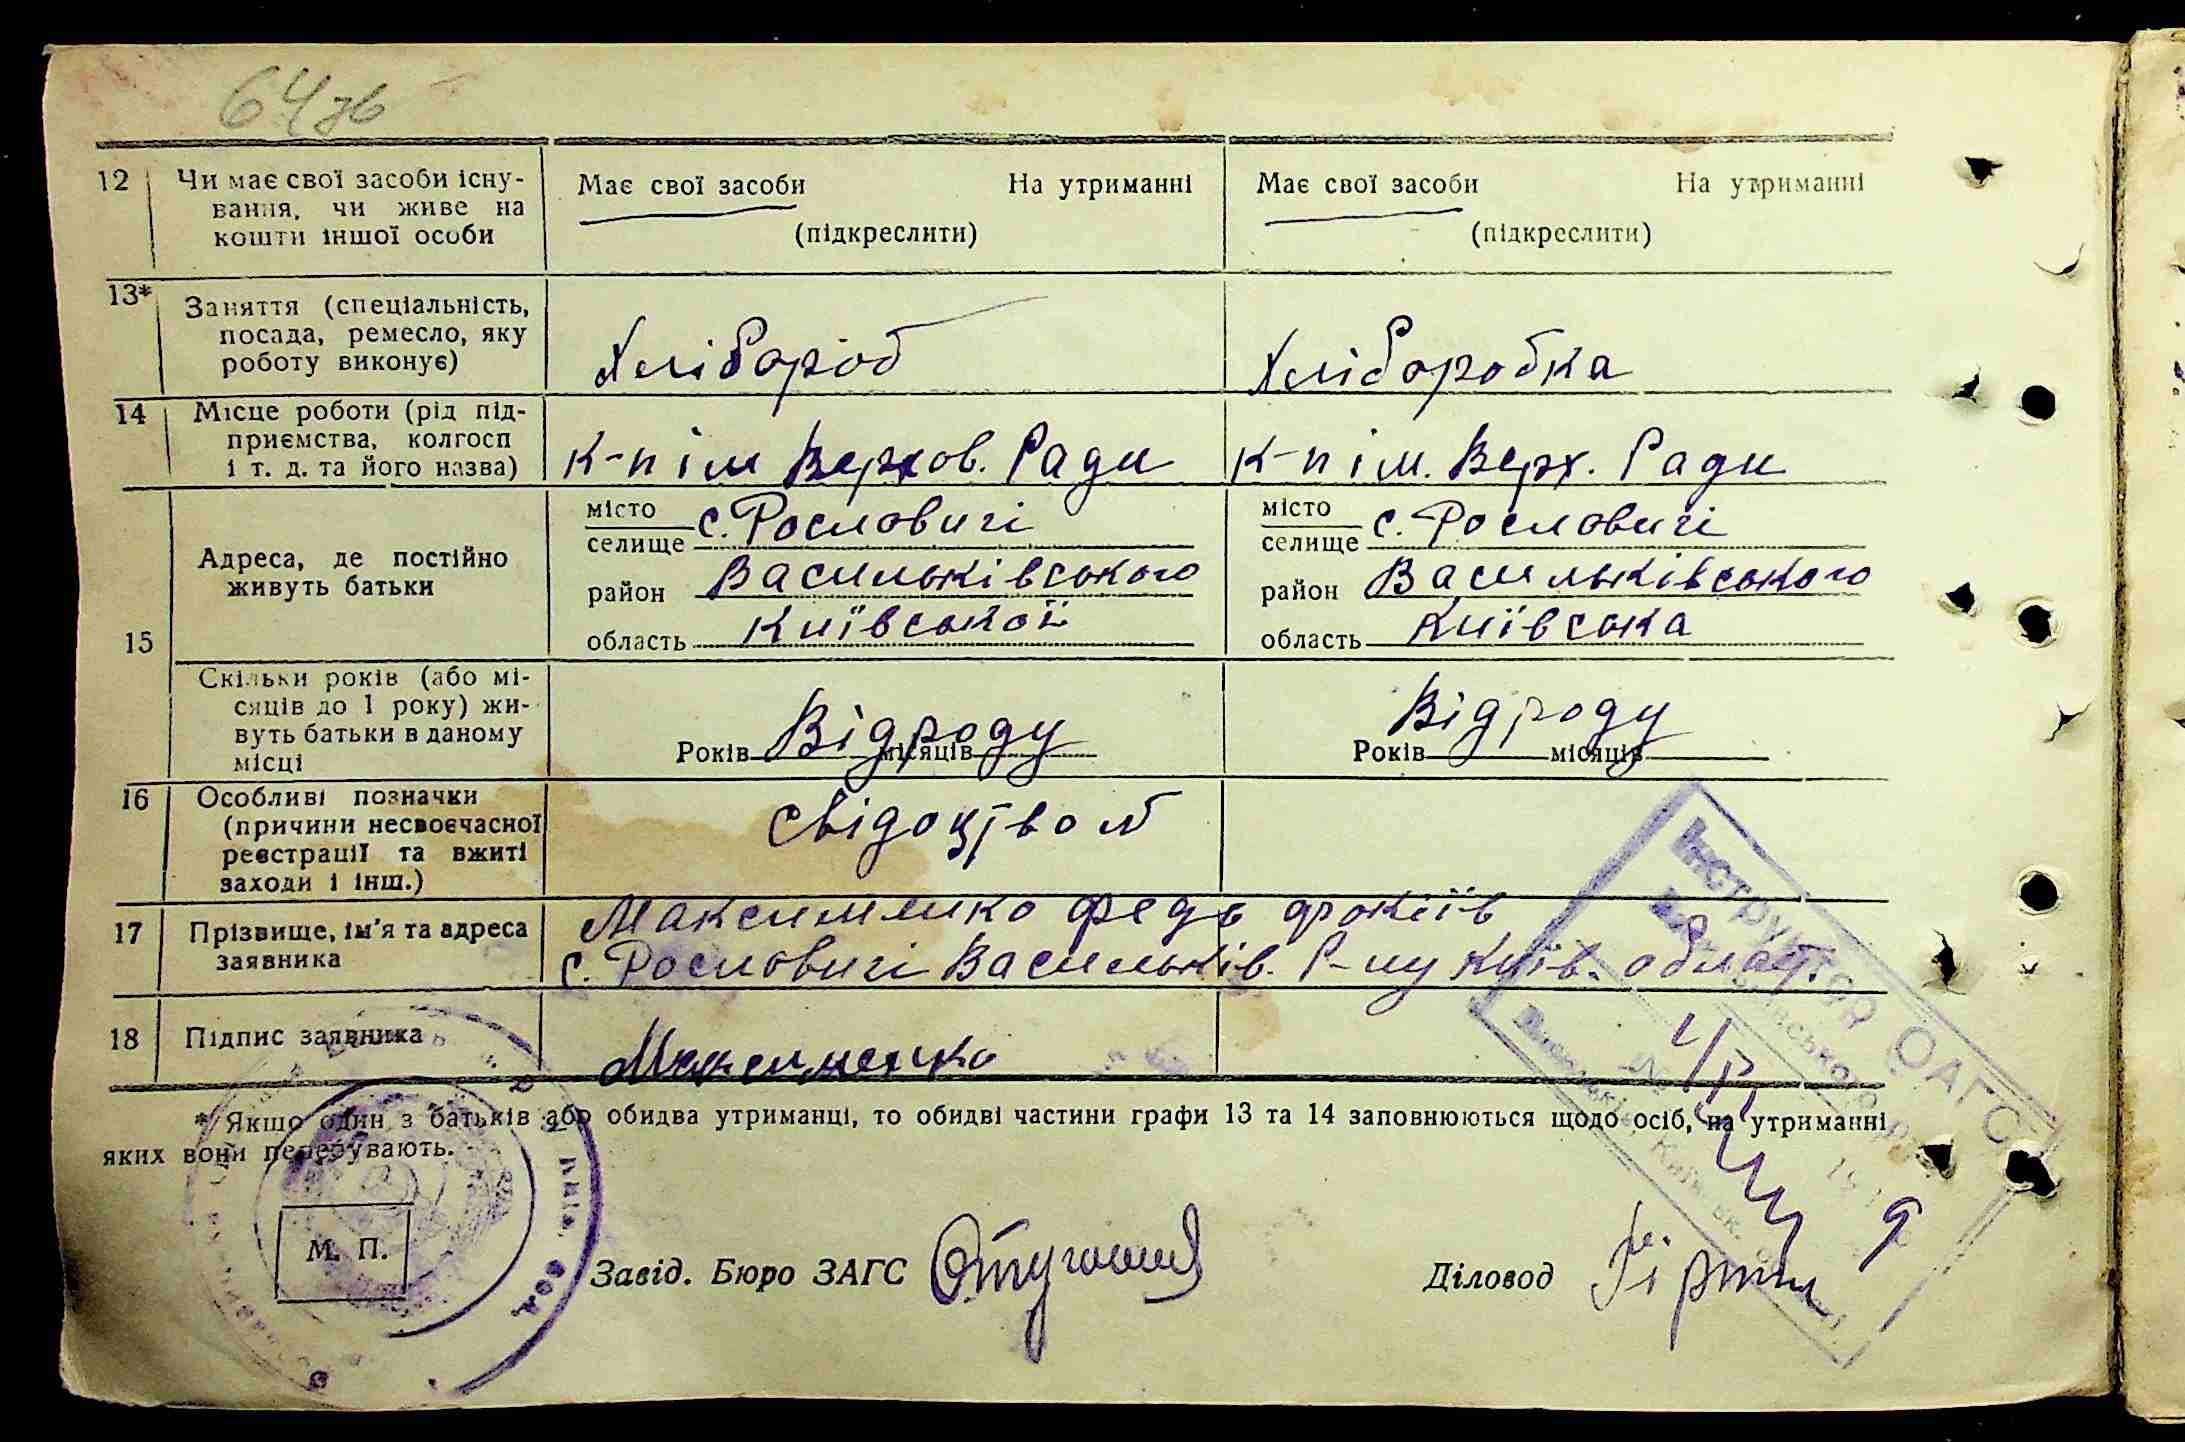 64 зв
12 Чи має свої засоби існу-
вання, чи живе на
кошти іншої особи
Має свої засоби На утриманні
(підкреслити)
Має свої засоби На утриманні
(підкреслити)
13* Заняття (спеціальність,
посада, ремесло, яку
роботу виконує)
Хлібороб
Хлібооробка
14 Місце роботи (рід під-
приємства, колгосп
і т. д. та його назва)
К-п ім Верхов. Ради
К-п ім. Верх. Ради
15 Адреса, де постійно
живуть батьки
місто
селище с. Рословичі
район Васильківського
область Київської
місто
селище с. Рословичі
район Васильківського
область Київська
Скільки років (або мі-
сяців до 1 року) жи-
вуть батьки в даному
місці
Років Відроду місяців
Років Відроду місяців
16 Особливі позначки
(причини несвоєчасної
реєстрації та вжиті
заходи і інш.)
свідоцтво
17 Прізвище, ім'я та адреса
заявника
Максименко Федь
с. Рословичі Васильків. Р-ну Київ. област.
18 Підпис заявника
Максименко
* Якщо один з батьків або обидва утриманці, то обидві частини графи 13 та 14 заповнюються щодо осіб, на утриманні
яких вони перебувають.
М. П.
Завід. Бюро ЗАГС
Діловод
Інструктор ОАГС